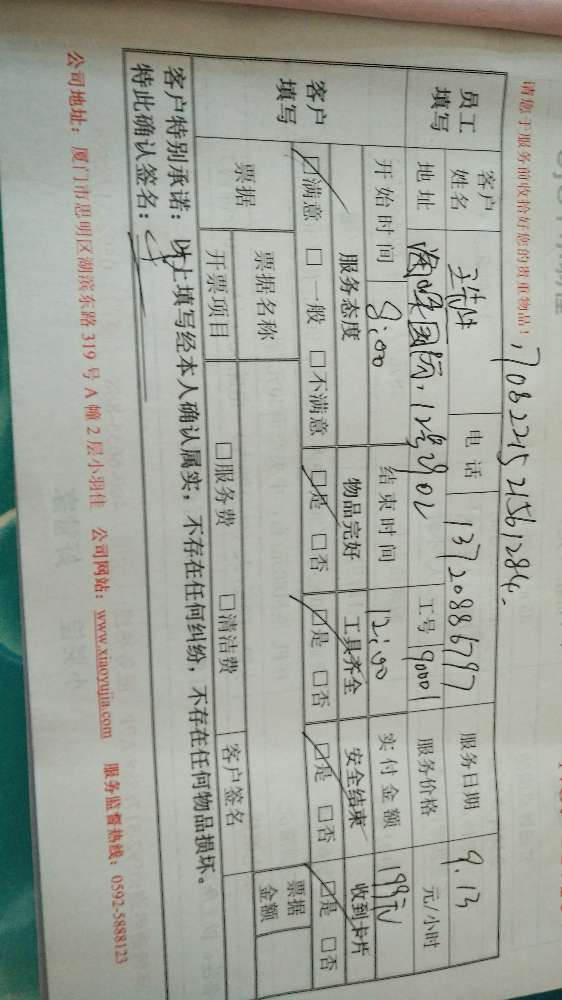 请您于服务前收拾好您的贵重物品!
员工填写 客户姓名 电话 13720886797 服务日期 9.13
地址 国际,12号902 工号 90001 服务价格 元/小时
开始时间 8:00 结束时间 12:00 实付金额 199元
客户填写 服务态度 物品完好 工具齐全 安全结束 收到卡片
☑满意 □一般 □不满意 ☑是 □否 ☑是 □否 ☑是 □否 ☑是 □否
票据 票据名称 票据金额
开票项目 □服务费 □清洁费 客户签名
客户特别承诺:以上填写经本人确认属实,不存在任何纠纷,不存在任何物品损坏。
特此确认签名:
公司地址:厦门市思明区湖滨东路 319 号 A 幢 2 层小羽佳 公司网站:www.xiaoyujia.com 服务监督热线:0592-5888123